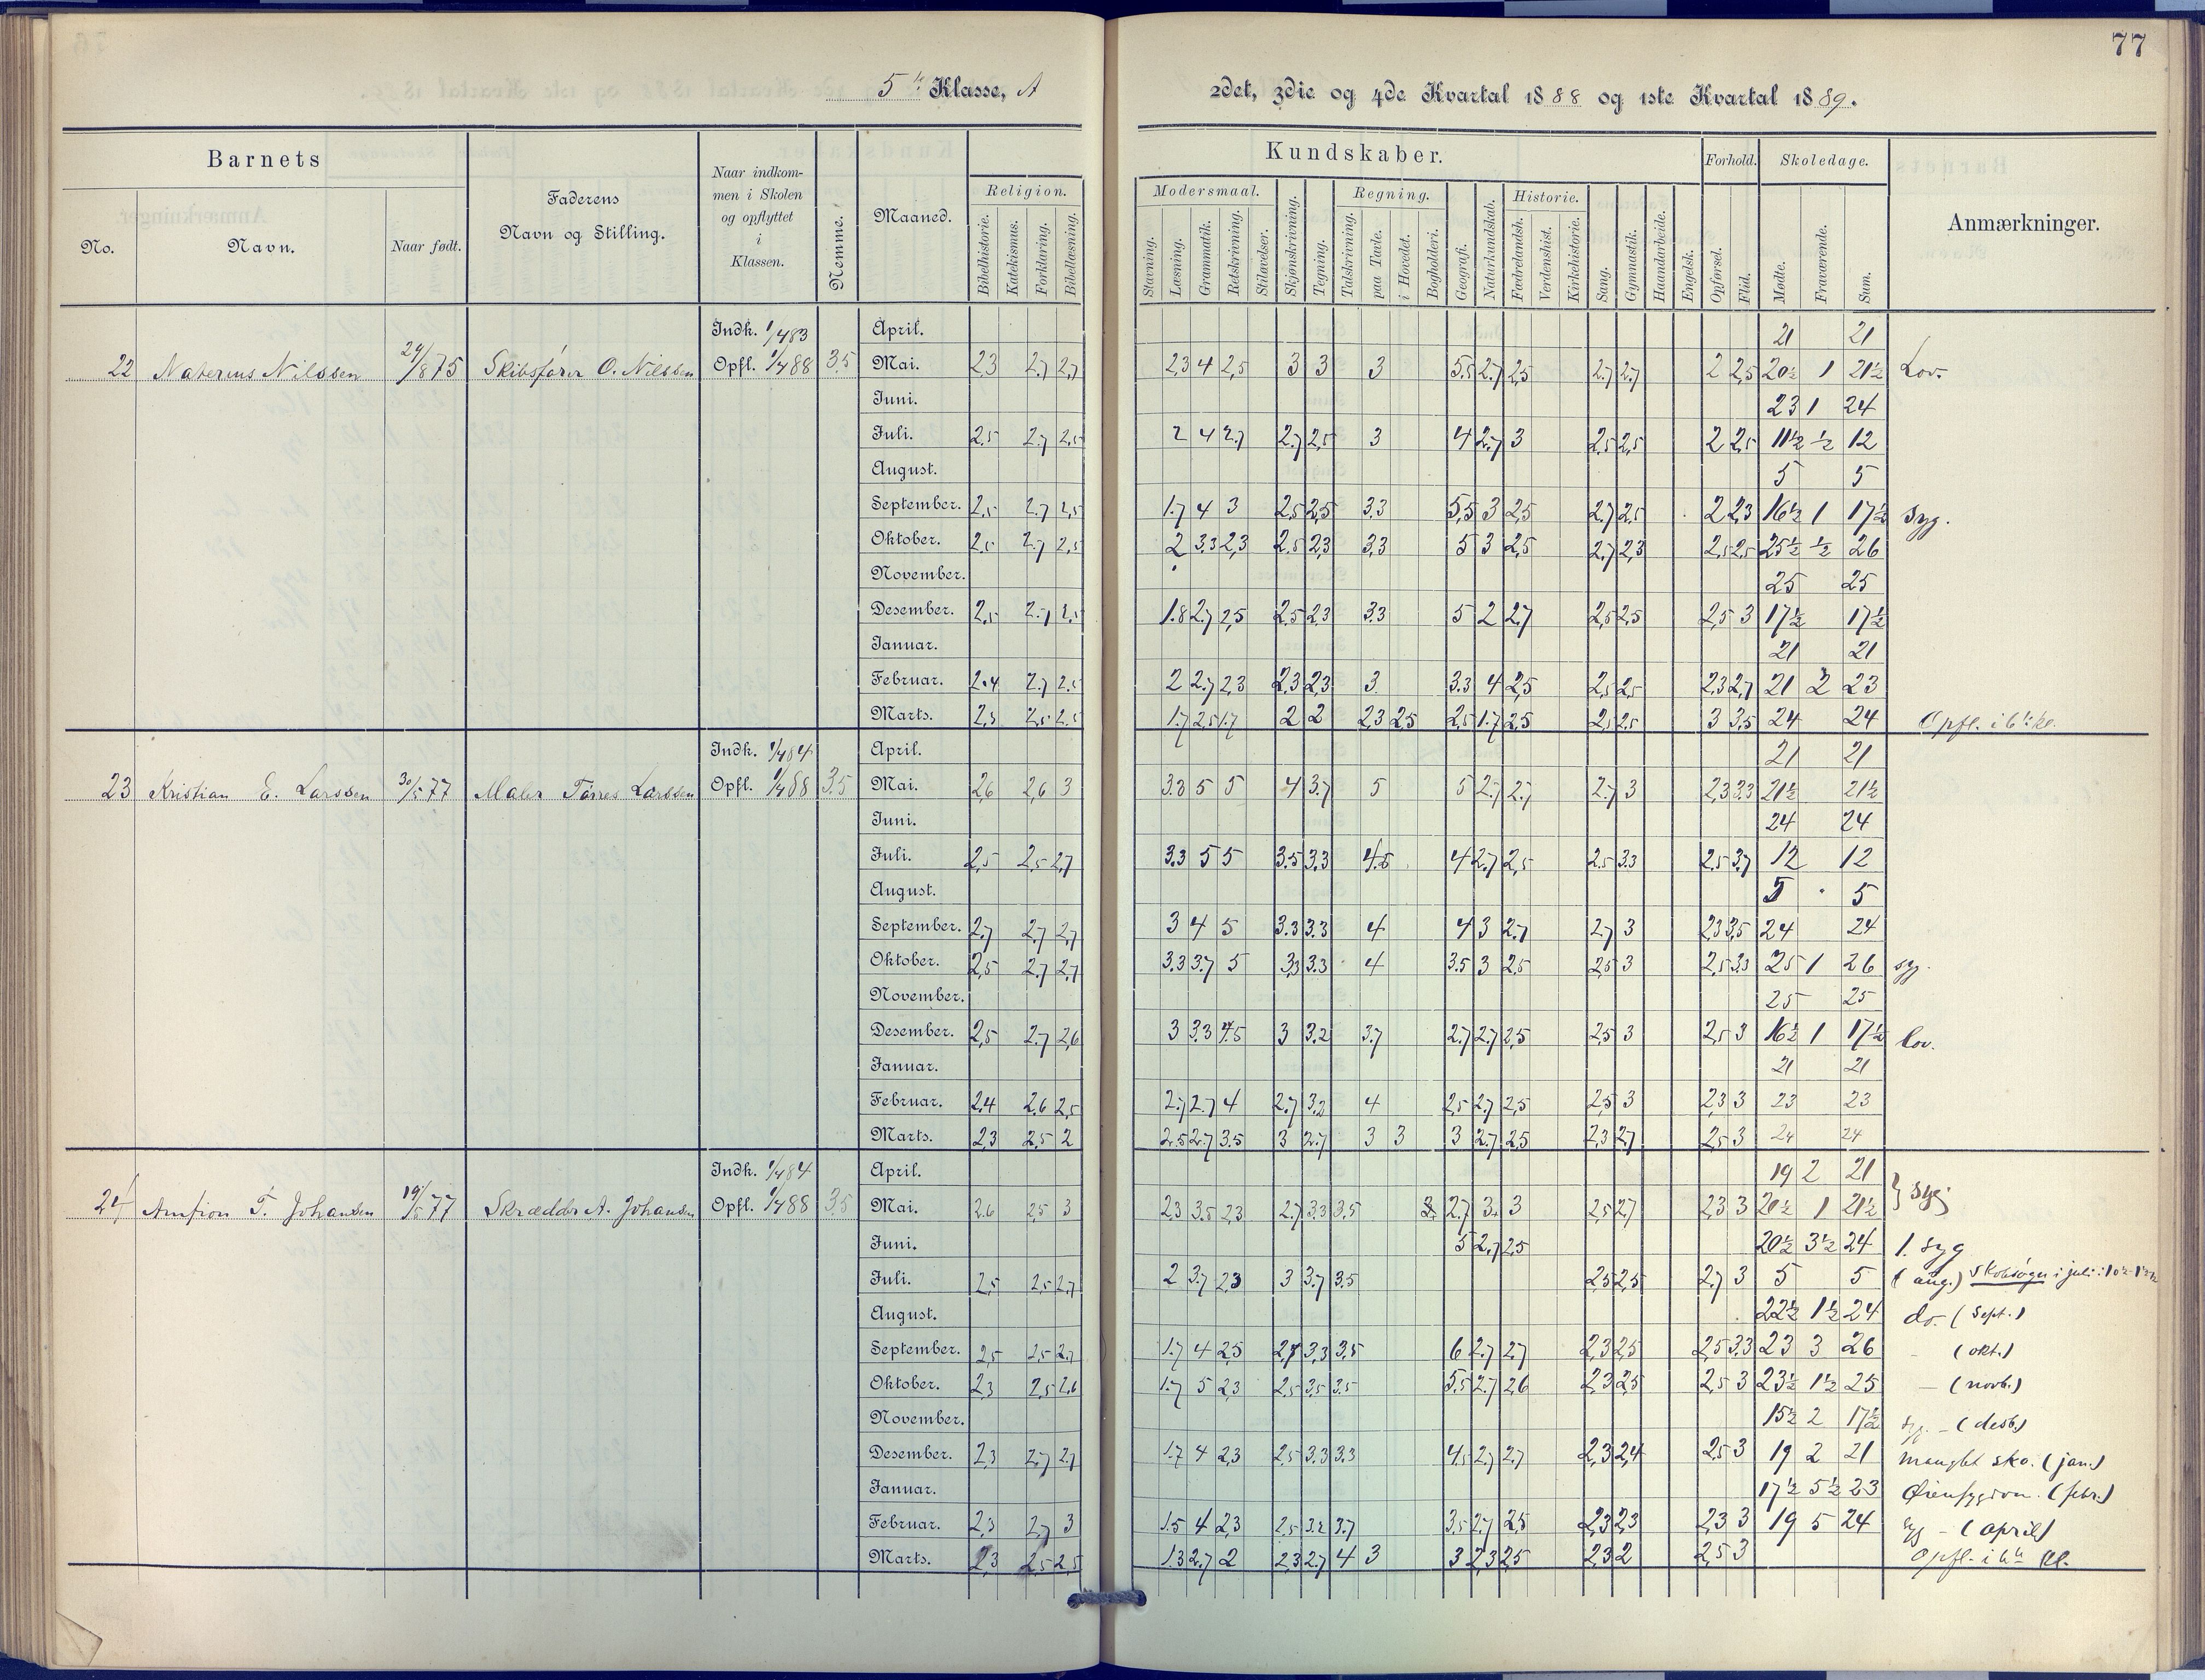 77
5te Klasse, A
2det, 3die og 4de Kvartal 1888 og 1ste Kvartal 1889.
Barnets
No.
Navn.
Naar født.
Faderens
Navn og Stilling.
Naar indkom-
men i Skolen
og opflyttet
i
Klassen.
Nemme.
Maaned.
Kundskaber.
Religion.
Bibelhistorie. Katekismus. Forklaring. Bibellæsning.
Modersmaal.
Stavning. Læsning. Grammatik. Retskrivning. Stiløvelser.
Skjønskrivning. Tegning.
Regning.
Talskrivning. paa Tavle. i Hovedet. Bogholderi.
Geografi. Naturkundskab.
Historie.
Fædrelandsh. Verdenshist. Kirkehistorie.
Sang. Gymnastik. Haandarbeide. Engelsk.
Forhold.
Opførsel. Flid.
Skoledage.
Mødte. Fraværende. Sum.
Anmærkninger.
Indk. 1/4 83 April. 21 21
22 Nils­sen 24/8 75 Skibsfører O. Nilssen Opfl. 1/4 88 3,5 Mai. 2,3 2,7 2,7 2,3 4 2,5 3 3 3 5,5 2,7 2,5 2,7 2,7 2 2,5 20½ 1 21½ Lov.
Juni. 23 1 24
Juli. 2,5 2,7 2,5 2 4 2,7 2,7 2,5 3 4 2,7 3 2,5 2,5 2 2,5 11½ ½ 12
August. 5 5
September. 2,5 2,7 2,5 1,7 4 3 2,5 2,5 3,3 5,5 3 2,5 2,7 2,5 2 2,3 16½ 1 17½ Syg.
Oktober. 2,5 2,7 2,5 2 3,3 2,3 2,5 2,3 3,3 5 3 2,5 2,7 2,3 2,5 2,5 25½ ½ 26
November. 25 25
Desember. 2,5 2,7 2,5 1,8 2,7 2,5 2,5 2,3 3,3 5 2 2,7 2,5 2,5 2,5 3 17½ 17½
Januar. 21 21
Februar. 2,4 2,7 2,5 2 2,7 2,3 2,3 2,3 3 3,3 4 2,5 2,5 2,5 2,3 2,7 21 2 23
Marts. 2,3 2,5 2,5 1,7 2,5 1,7 2 2 2,3 2,5 2,5 1,7 2,5 2,5 2,5 3 3,5 24 24 Opfl. i 6te kl.
Indk. 1/4 84 April. 21 21
23 Kristian E. Larssen 30/5 77 Maler Tørres Larssen Opfl. 1/4 88 3,5 Mai. 2,6 2,6 3 3,3 5 5 4 3,7 5 5 2,7 2,7 2,7 3 2,3 3,3 21½ 21½
Juni. 24 24
Juli. 2,5 2,5 2,7 3,3 5 5 3,5 3,3 4,5 4 2,7 2,5 2,5 3,3 2,5 3,7 12 12
August. 5 5
September. 2,7 2,7 2,7 3 4 5 3,3 3,3 4 4 3 2,7 2,7 3 2,3 3,5 24 24
Oktober. 2,5 2,7 2,7 3,3 3,7 5 3,3 3,3 4 3,5 3 2,5 2,5 3 2,5 3,3 25 1 26 syg.
November. 25 25
Desember. 2,5 2,7 2,6 3 3,3 4,5 3 3,2 3,7 2,7 2,7 2,5 2,5 3 2,5 3 16½ 1 17½ lov.
Januar. 21 21
Februar. 2,4 2,6 2,5 2,7 2,7 4 2,7 3,2 4 2,5 2,7 2,5 2,5 3 2,3 3 23 23
Marts. 2,3 2,5 2 2,5 2,7 3,5 3 2,7 3 3 3 2,7 2,5 2,3 2,7 2,5 3 24 24
Indk. 1/4 84 April. 19 2 21
24 Amfion T. Johansen 19/5 77 Skrædder A. Johansen Opfl. 1/4 88 3,5 Mai. 2,6 2,5 3 2,3 3,5 2,3 2,7 3,3 3,5 2,7 3 3 2,5 2,7 2,3 3 20½ 1 21½ } syg
Juni. 5 2,7 2,5 20½ 3½ 24 1. syg
Juli. 2,5 2,5 2,7 2 3,7 2,3 3 3,7 3,5 2,5 2,5 2,7 3 5 5 (aug.) Skolesøgn i juli:
August. 22½ 1½ 24 do. (Sept.)
September. 2,5 2,5 2,7 1,7 4 2,5 2,7 3,3 3,5 6 2,7 2,7 2,3 2,5 2,5 3,3 23 3 26 – (okt.)
Oktober. 2,3 2,5 2,6 1,7 5 2,3 2,5 3,5 3,5 5,5 2,7 2,6 2,3 2,5 2,5 3 23½ 1½ 25 – (novb.)
November. 15½ 2 17½ syg. – (desb)
Desember. 2,3 2,7 2,7 1,7 4 2,3 2,5 3,3 3,3 4,5 2,7 2,7 2,3 2,4 2,5 3 19 2 21 manglet sko. (jan.)
Januar. 17½ 5½ 23 (febr.)
Februar. 2,3 2,7 3 1,5 4 2,3 2,5 3,2 3,7 3,5 2,7 2,5 2,3 2,3 2,3 3 19 5 24 syg – (april)
Marts. 2,3 2,5 2,5 1,3 2,7 2 2,3 2,7 4 3 3 2,3 2,5 2,3 2 2,5 3 Opfl. i 6te kl.